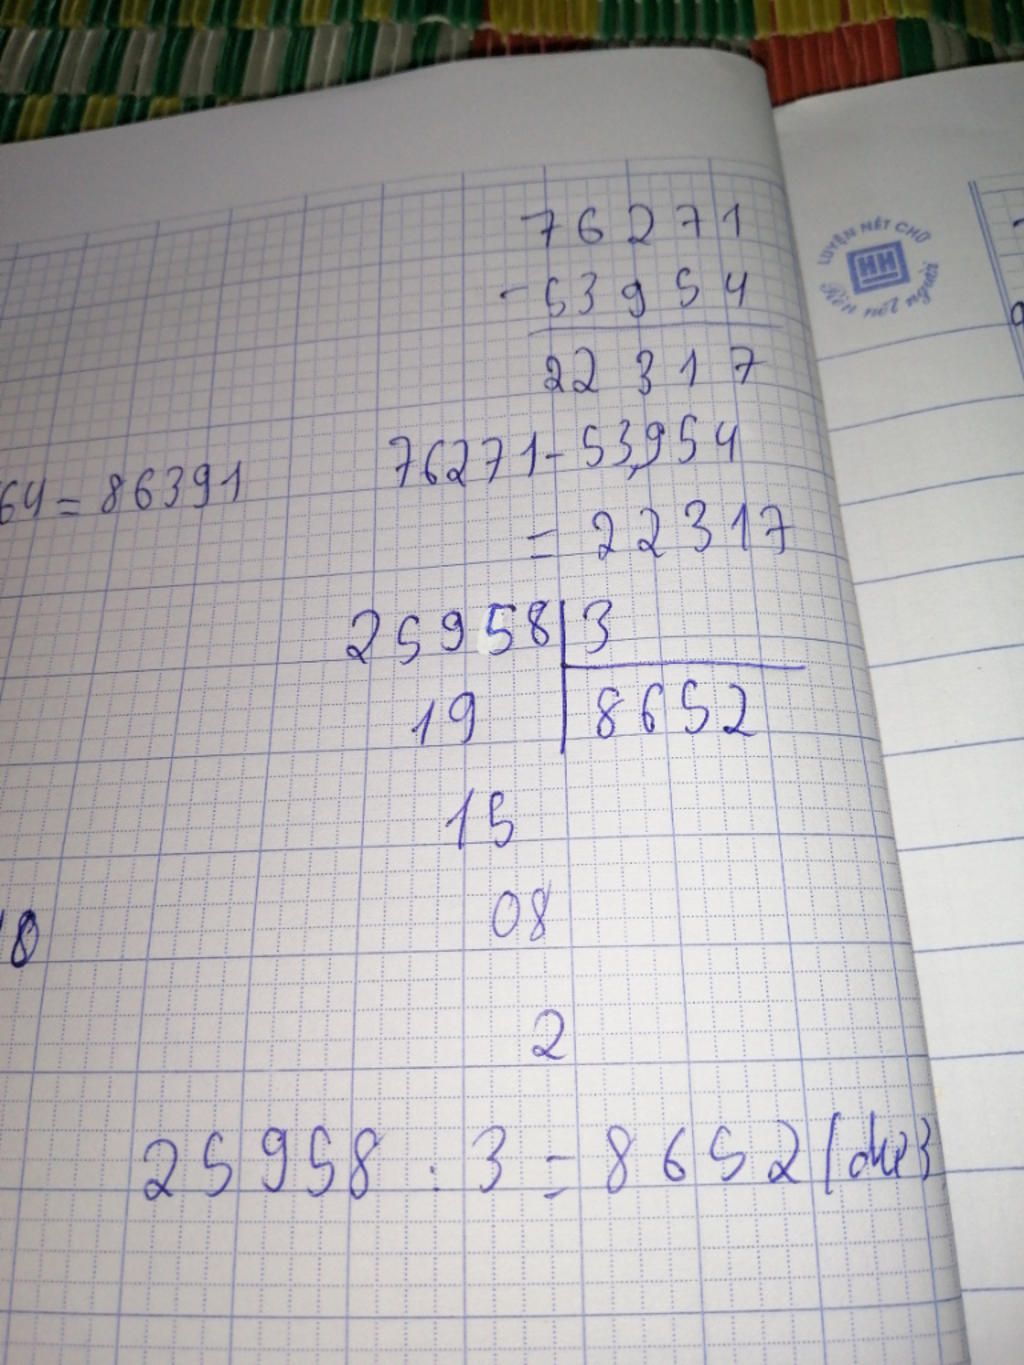 76271
- 53954
22317
64 = 86391
76271 - 53954
= 22317
25958 3
19 8652
15
08
2
25958 : 3 = 8652 (dư
LUYỆN NÉT CHỮ
HH
Rèn nết người